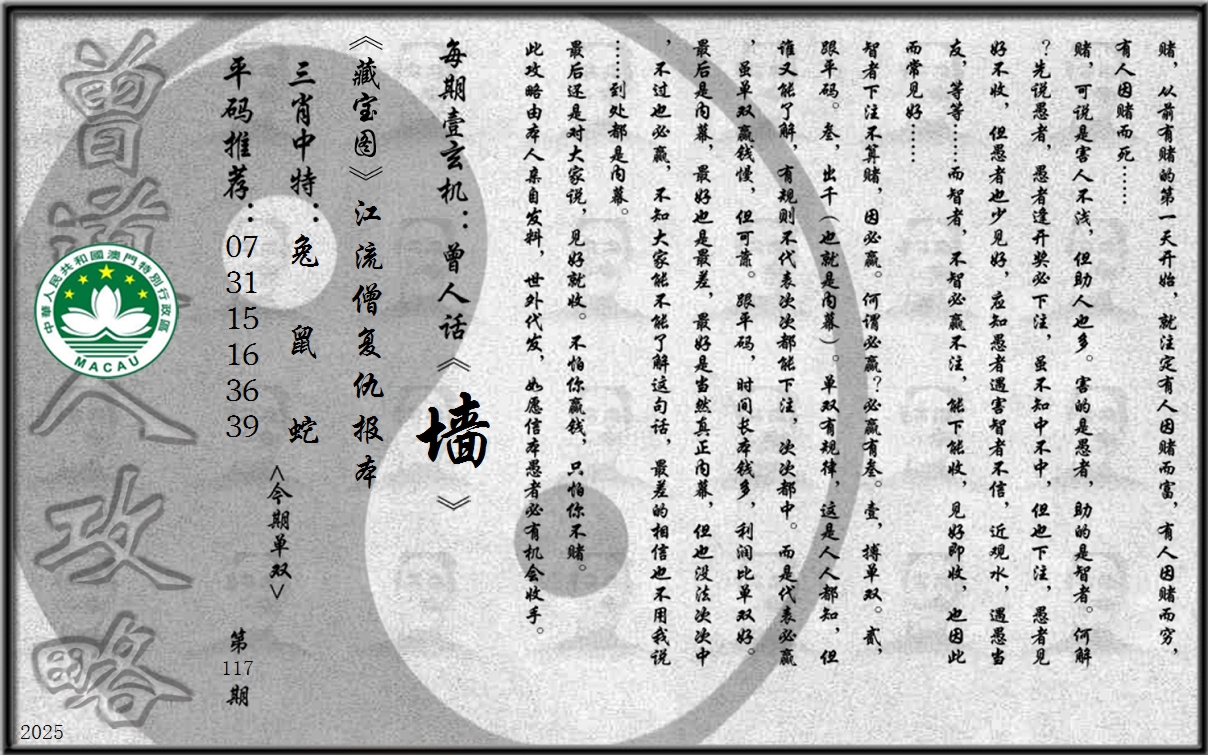 赌，从前有赌的第一天开始，就注定有人因赌而富，有人因赌而穷，
有人因赌而死……
赌，可说是害人不浅，但助人也多。害的是愚者，助的是智者。何解
？先说愚者，愚者逢开奖必下注，虽不知中不中，但也下注，愚者见
好不收，但愚者也少见好，应知愚者遇害智者不信，近观水，遇愚当
友，等等……而智者，不智必赢不注，能下能收，见好即收，也因此
而常见好……
智者下注不算赌，因必赢。何谓必赢？必赢有叁。壹，搏单双。贰，
跟平码。叁，出千（也就是内幕）。单双有规律，这是人人都知，但
谁又能了解，有规则不代表次次都能下注，次次都中。而是代表必赢
，虽单双赢钱慢，但可靠。跟平码，时间长本钱多，利润比单双好。
最后是内幕，最好也是最差，最好是当然真正内幕，但也没法次次中
，不过也必赢，不知大家能不能了解这句话，最差的相信也不用我说
……到处都是内幕。
最后还是对大家说，见好就收。不怕你赢钱，只怕你不赌。
此攻略由本人亲自发料，世外代发，如愿信本愚者必有机会收手。
每期壹玄机：曾人话《墙》
《藏宝图》江流僧复仇报本
三肖中特：兔 鼠 蛇
<今期单双>
平码推荐：07 31 15 16 36 39
第117期
曾道人攻略
中華人民共和國澳門特別行政區
MACAU
2025